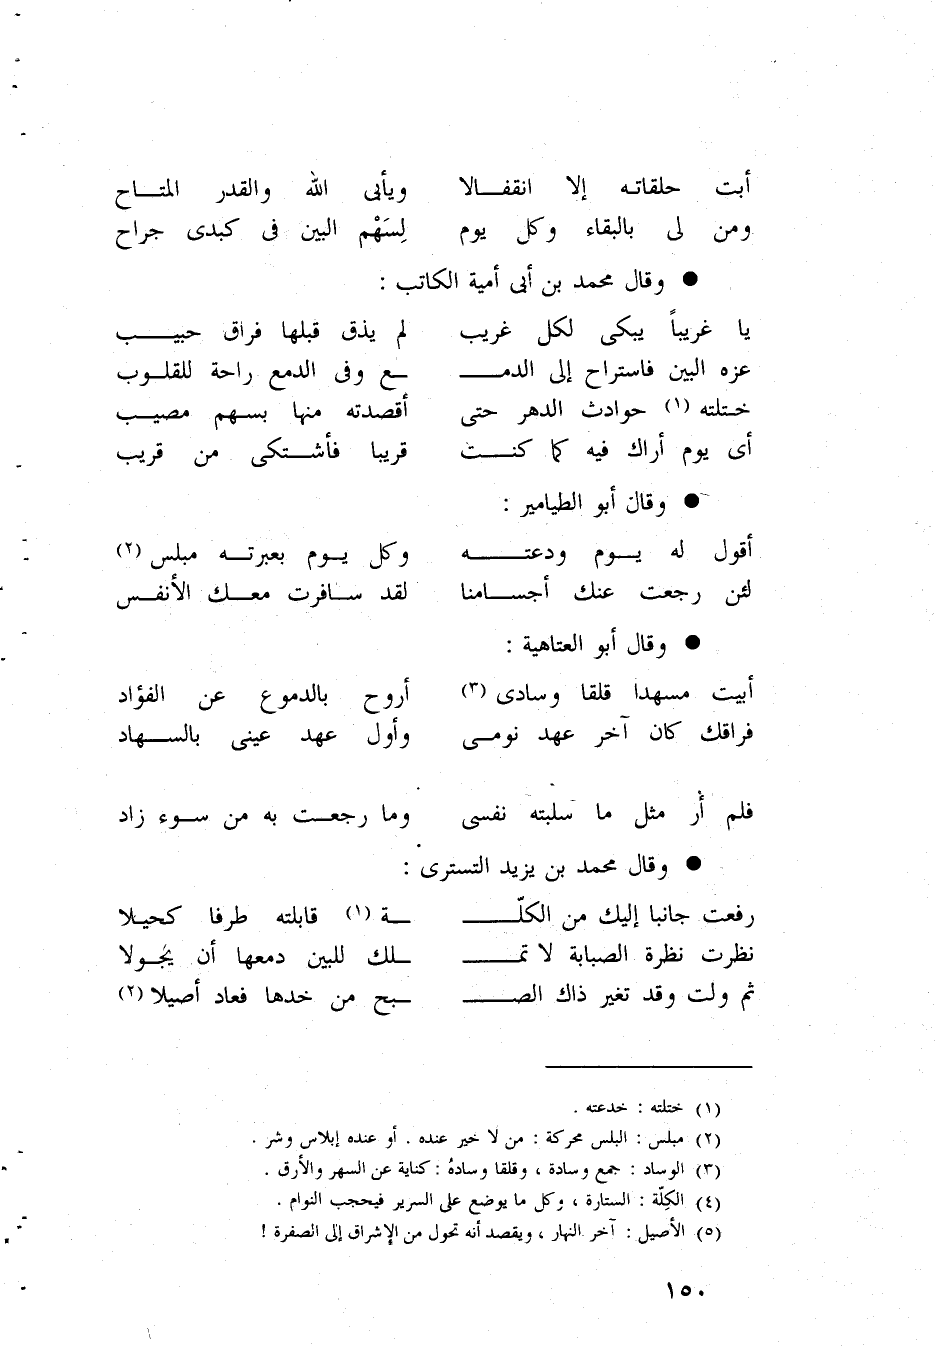 أبت حلقاته إلا انقفـــالا ويأبى الله والقدر المتـــاح
ومن لى بالبقاء وكل يوم لِسَهْم البين فى كبدى جراح
● وقال محمد بن أبى أمية الكاتب :
يا غريباً يبكى لكل غريب لم يذق قبلها فراق حبيـــب
عزه البين فاستراح إلى الدمـــ ـــع وفى الدمع راحة للقلــوب
خـتلته (١) حوادث الدهر حتى أقصدته منها بسـهم مصيـب
أى يوم أراك فيه كما كنـــت قريبا فأشــتكى من قريب
● وقال أبو الطيامير :
أقول له يـــوم ودعتـــــه وكل يــوم بعبرتــه مبلس (٢)
لئن رجعت عنك أجســامنا لقد ســافرت معــك الأنفـس
● وقال أبو العتاهية :
أبيت مسهدا قلقا وسادى (٣) أروح بالدموع عن الفؤاد
فراقك كان آخر عهد نومـى وأول عهد عينى بالســـهاد
فلم أر مثل ما سلبته نفسى وما رجعــت به من ســوء زاد
● وقال محمد بن يزيد التسترى :
رفعت جانبا إليك من الكلّـــــ ـــة (١) قابلته طرفا كحيـلا
نظرت نظرة الصبابة لا تمـــــ ـــلك للبين دمعها أن يَجُـولا
ثم ولت وقد تغير ذاك الصـــــ ـــبح من خدها فعاد أصيلا (٢)
(١) ختلته : خدعته .
(٢) مبلس : البلس محركة : من لا خير عنده . أو عنده إبلاس وشر .
(٣) الوساد : جمع وسادة ، وقلقا وسادهُ : كناية عن السهر والأرق .
(٤) الكِلّة : الستارة ، وكل ما يوضع على السرير فيحجب النوام .
(٥) الأصيل : آخر النهار ، ويقصد أنه تحول من الإشراق إلى الصفرة !
١٥٠